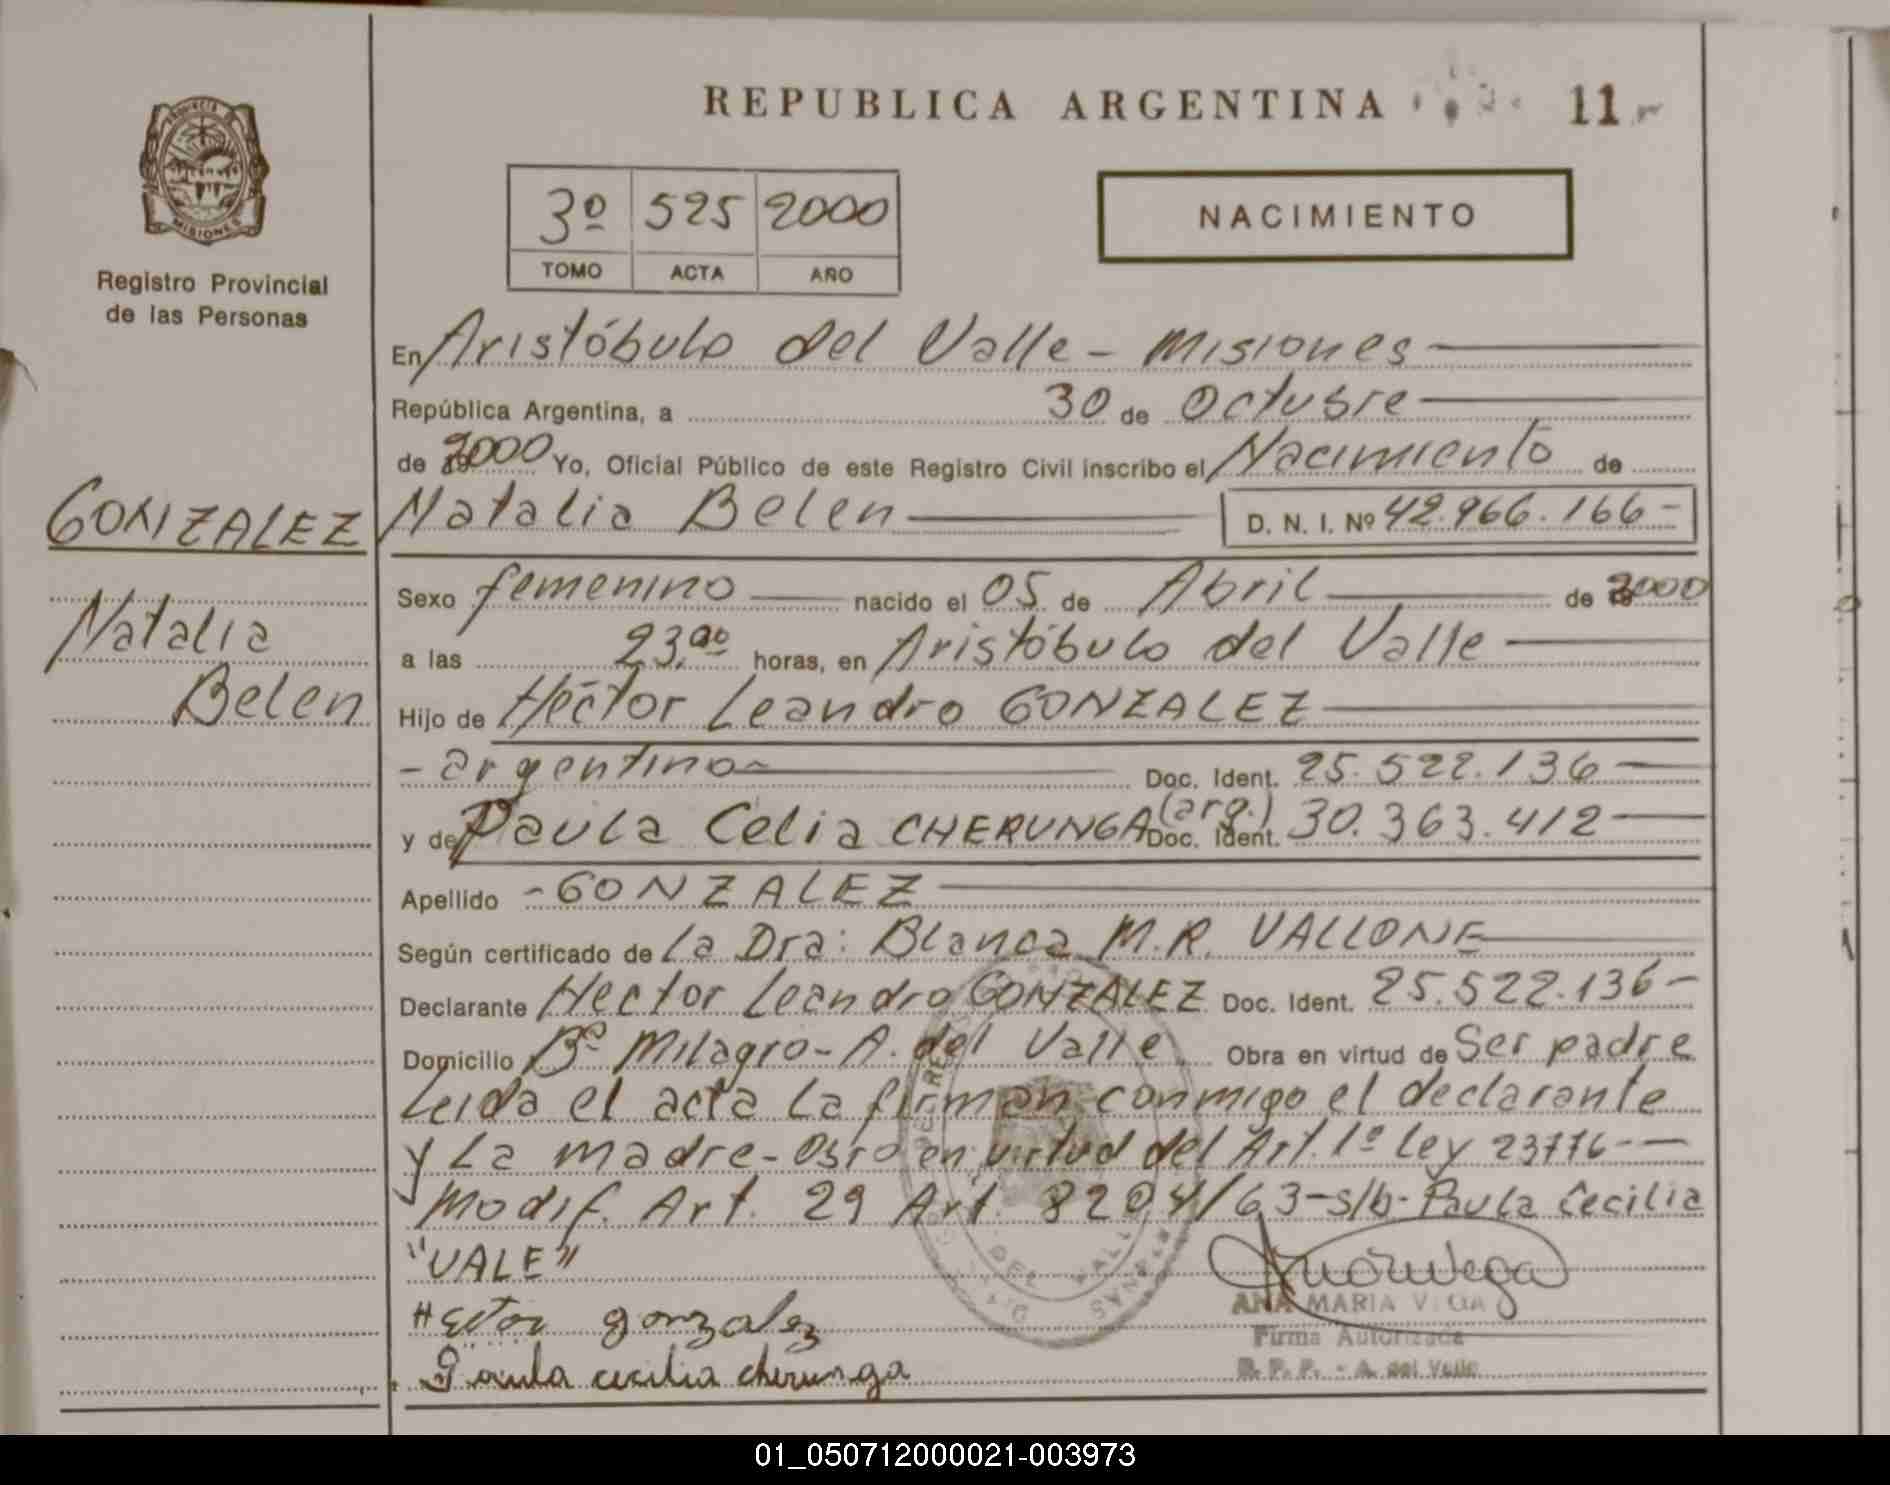 REPUBLICA ARGENTINA 11
PROVINCIA DE
MISIONES
Registro Provincial
de las Personas
3º 525 2000
TOMO ACTA AÑO
NACIMIENTO
En Aristóbulo del Valle - Misiones
República Argentina, a 30 de Octubre
de 2000 Yo, Oficial Público de este Registro Civil inscribo el Nacimiento de
GONZALEZ
Natalia Belen D. N. I. Nº 42.966.166-
Sexo femenino nacido el 05 de Abril de 2000
Natalia
a las 23,00 horas, en Aristóbulo del Valle
Belen
Hijo de Héctor Leandro GONZALEZ
- argentino - Doc. Ident. 25.522.136
y de Paula Celia CHERUNGA (arg.) Doc. Ident. 30.363.412
Apellido - GONZALEZ
Según certificado de La Dra: Blanca M.R. VALLONE
Declarante Hector Leandro GONZALEZ Doc. Ident. 25.522.136-
Domicilio Bº Milagro - A. del Valle. Obra en virtud de Ser padre
Leida el acta la firman conmigo el declarante
y La madre - Osro en virtud del Art. 1º Ley 23776-
Modif. Art. 29 Art. 8204/63-s/b- Paula Cecilia
"VALE"
ANA MARIA VEGA
Hector gonzalez
Firma Autorizada
Paula cecilia cherunga
R. P. P. - A. del Valle
01_050712000021-003973